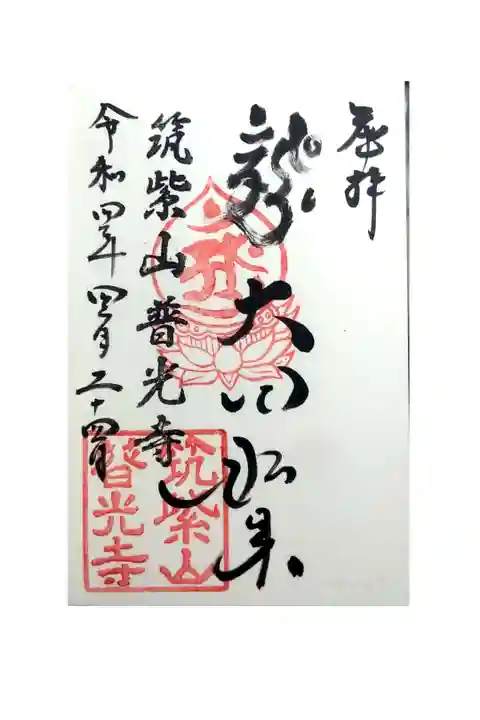 奉拝
大日如来
筑紫山普光寺
令和四年四月二十四日
筑紫山
普光寺